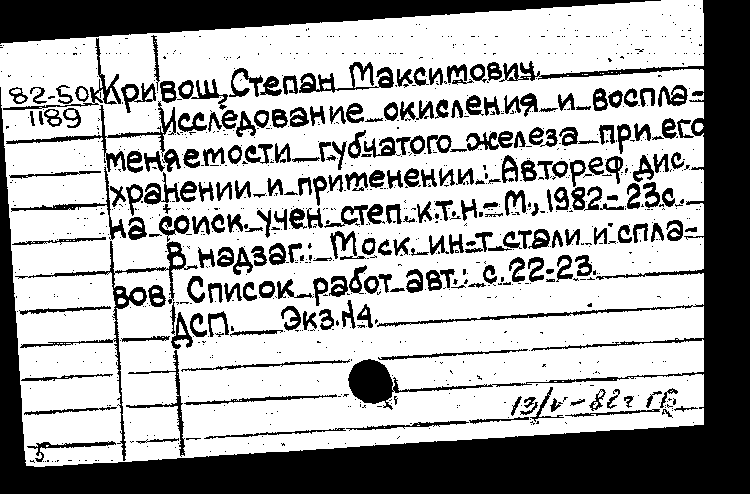 82-50к
1189
Кривош, Степан Максимович.
Исследование окисления и воспла-
меняемости губчатого железа при его
хранении и применении: Автореф. дис.
на соиск. учен. степ. к.т.н. - М., 1982. - 23с.
В надзаг.: Моск. ин-т стали и спла-
вов. Список работ авт.: с. 22-23.
ДСП. Экз. №4.
13/V-82г ГБ
5